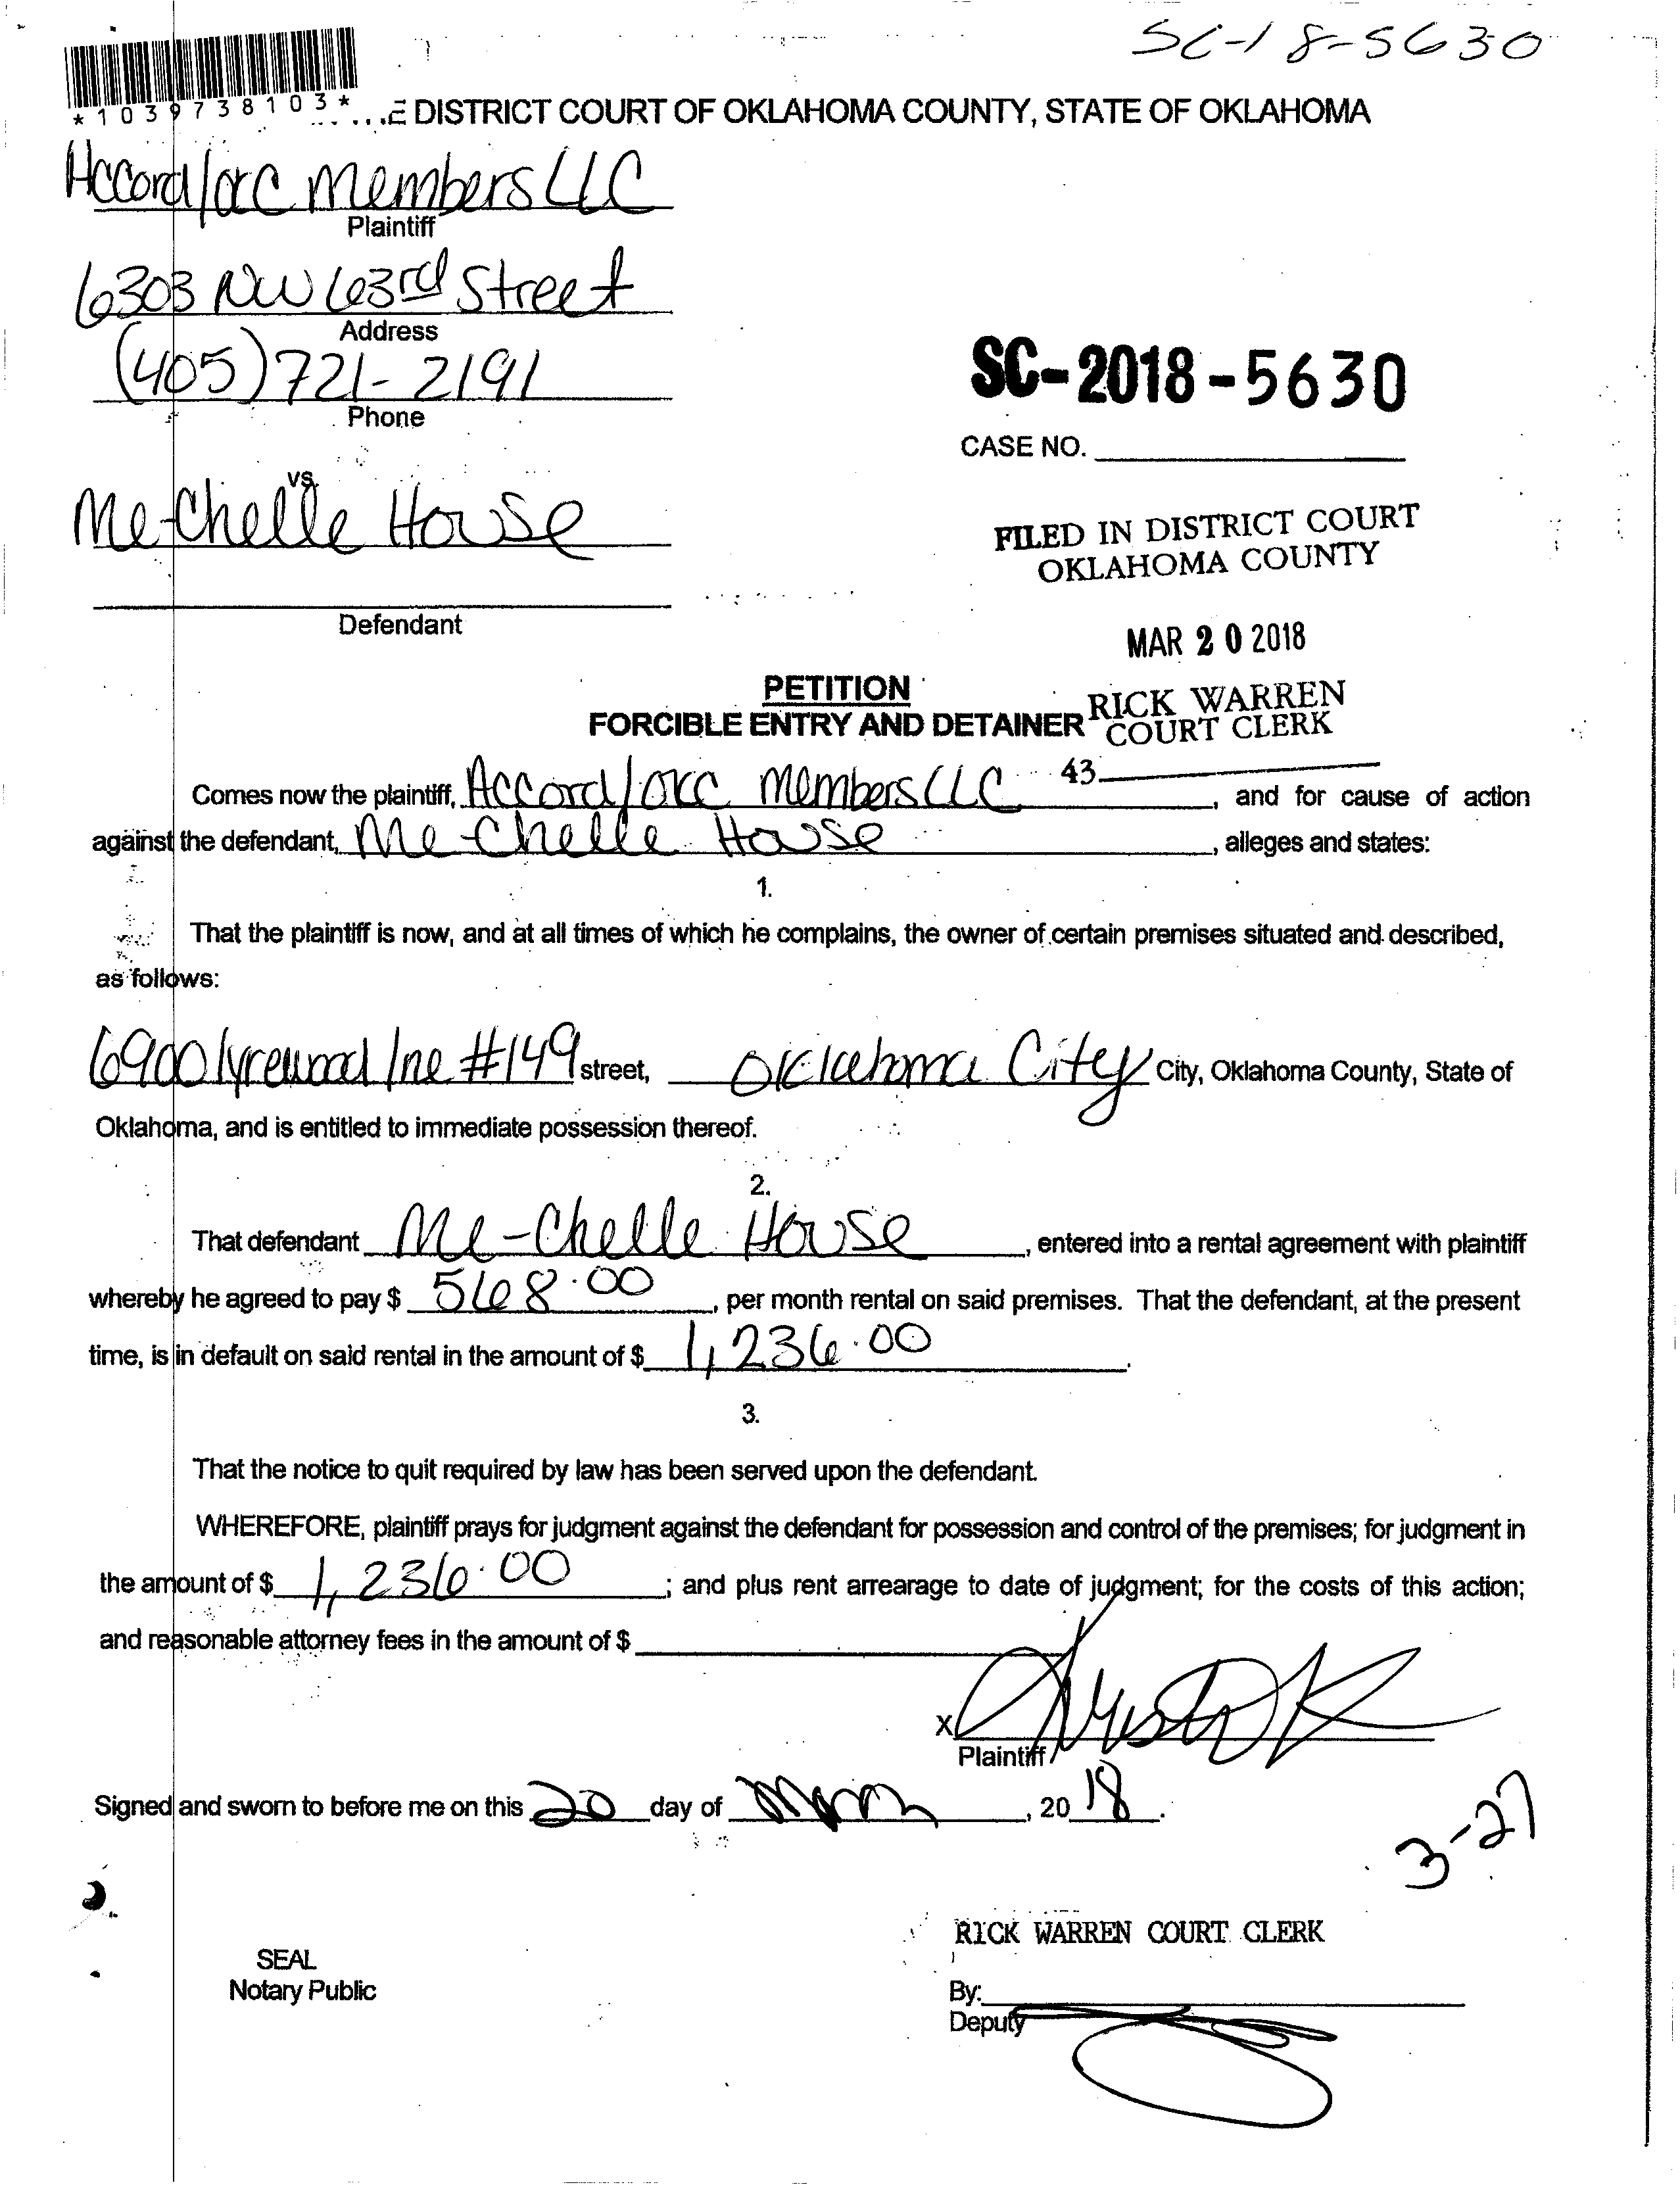 SC-18-5630
*1039738103*
E DISTRICT COURT OF OKLAHOMA COUNTY, STATE OF OKLAHOMA
Accord/OKC Members LLC
Plaintiff
6303 NW 63rd Street
Address
(405) 721-2191
Phone
SC-2018-5630
CASE NO.
vs.
Me-Chelle House
Defendant
FILED IN DISTRICT COURT
OKLAHOMA COUNTY
MAR 20 2018
RICK WARREN
COURT CLERK
43
PETITION
FORCIBLE ENTRY AND DETAINER
Comes now the plaintiff, Accord/OKC Members LLC, and for cause of action
against the defendant, Me-Chelle House, alleges and states:
1.
That the plaintiff is now, and at all times of which he complains, the owner of certain premises situated and described,
as follows:
6900 lyrewood lne #149 street, Oklahoma City City, Oklahoma County, State of
Oklahoma, and is entitled to immediate possession thereof.
2.
That defendant Me-Chelle House, entered into a rental agreement with plaintiff
whereby he agreed to pay $ 568.00, per month rental on said premises. That the defendant, at the present
time, is in default on said rental in the amount of $ 1,236.00.
3.
That the notice to quit required by law has been served upon the defendant.
WHEREFORE, plaintiff prays for judgment against the defendant for possession and control of the premises; for judgment in
the amount of $ 1,236.00; and plus rent arrearage to date of judgment; for the costs of this action;
and reasonable attorney fees in the amount of $
X
Plaintiff
Signed and sworn to before me on this 20 day of March, 20 18.
3-27
RICK WARREN COURT CLERK
SEAL
Notary Public
By:
Deputy